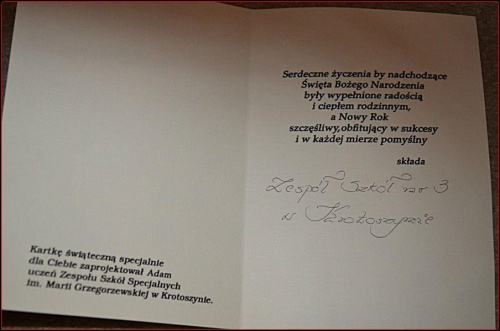 Serdeczne życzenia by nadchodzące
Święta Bożego Narodzenia
były wypełnione radością
i ciepłem rodzinnym,
a Nowy Rok
szczęśliwy,obfitujący w sukcesy
i w każdej mierze pomyślny
składa
Zespół Szkół nr 3
w Krotoszynie
Kartkę świąteczną specjalnie
dla Ciebie zaprojektował Adam
uczeń Zespołu Szkół Specjalnych
im. Marii Grzegorzewskiej w Krotoszynie.